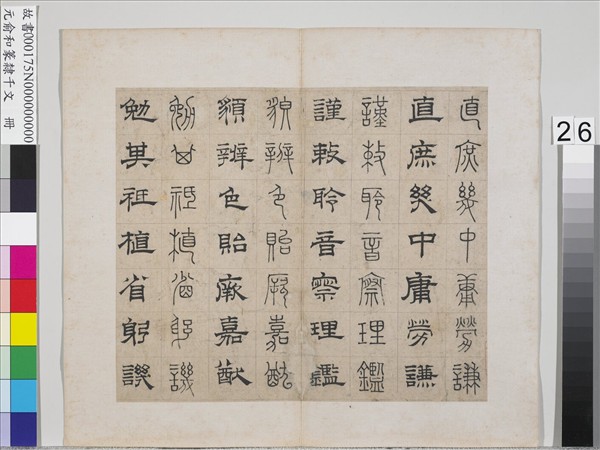 直庶幾中庸勞謙
直庶幾中庸勞謙
謹敕聆音察理鑑
謹敕聆音察理鑑
貌辨色貽厥嘉猷
䫉辨色貽厥嘉猷
勉其祗植省躬譏
勉其祗植省躬譏
故書000175N000000000
元俞和篆隸千文 冊
26